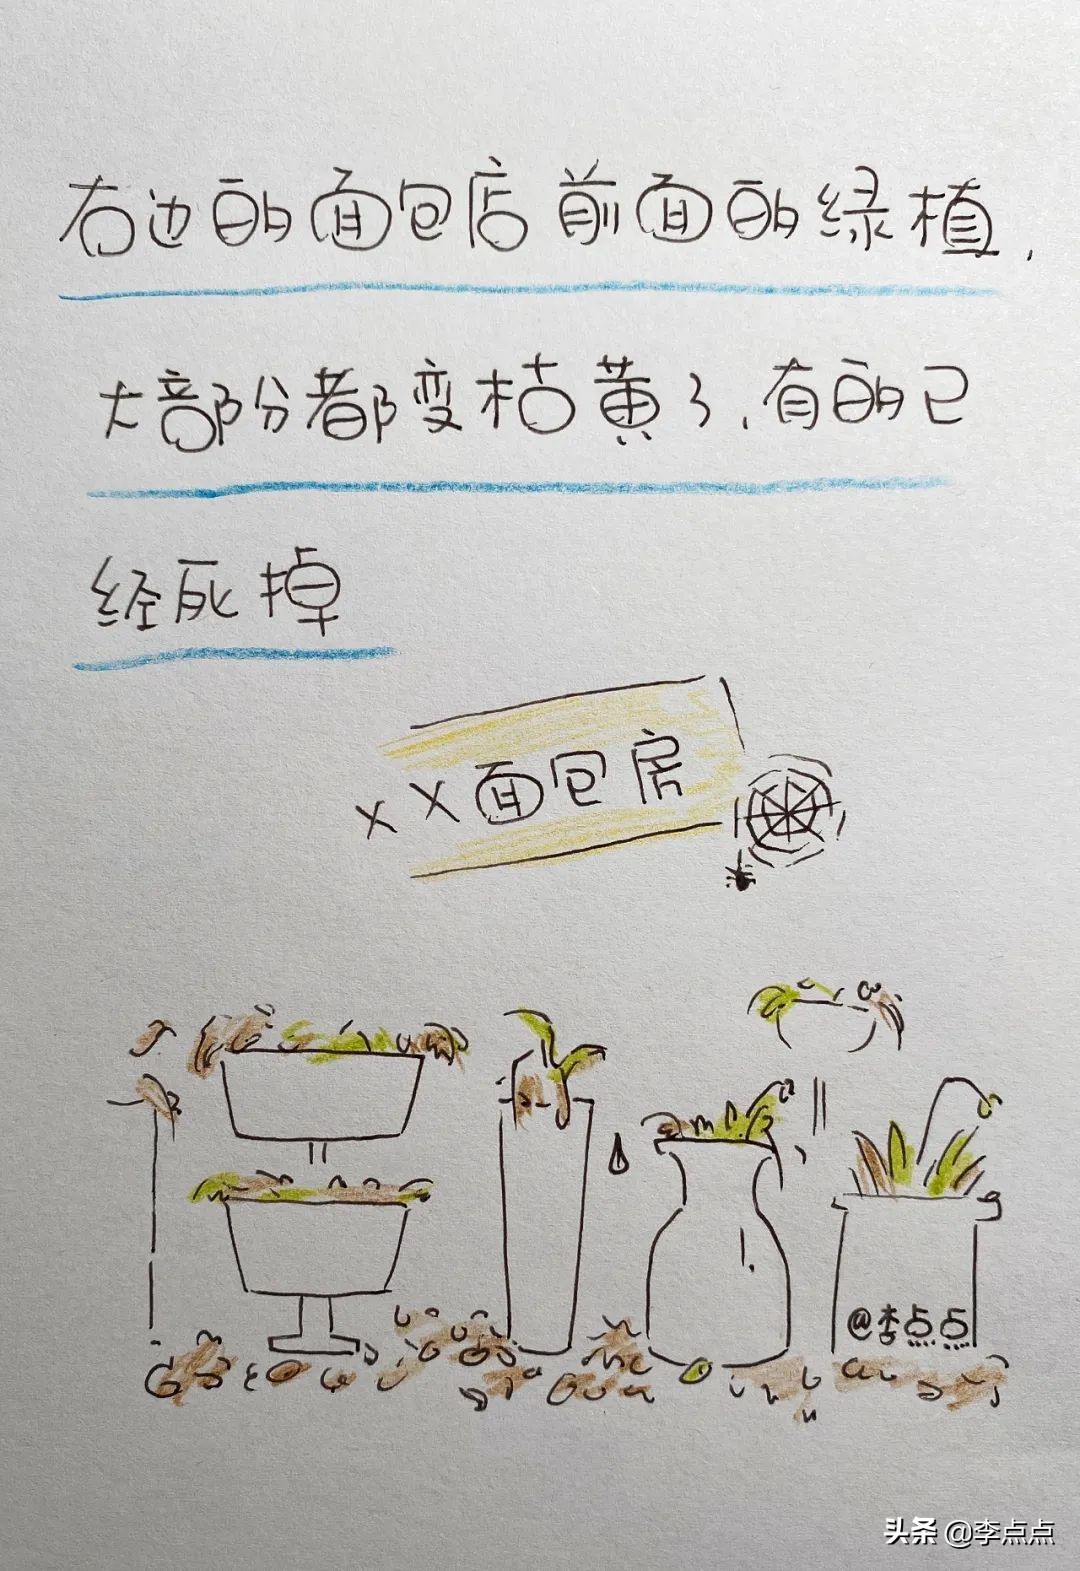 右边的面包店前面的绿植,
大部份都变枯黄了,有的已
经死掉
XX面包房
@李点点
头条 @李点点